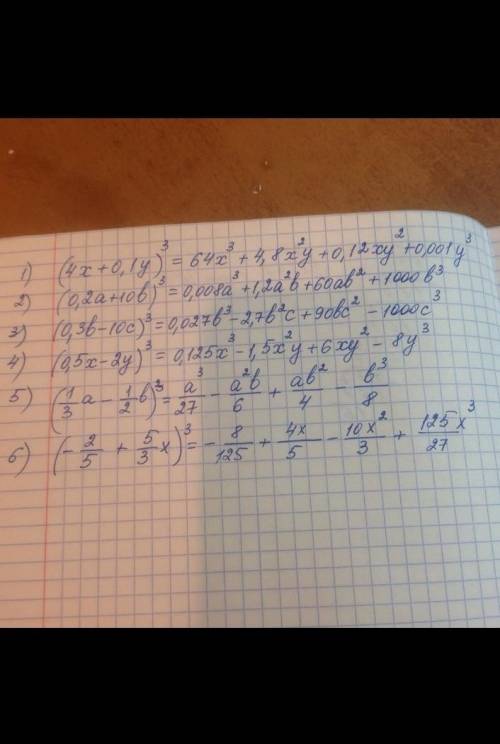 1) (4x+0,1y)³ = 64x³+4,8x²y+0,12xy²+0,001y³
2) (0,2a+10b)³=0,008a³+1,2a²b+60ab²+1000b³
3) (0,3b-10c)³=0,027b³-2,7b²c+90bc²-1000c³
4) (0,5x-2y)³=0,125x³-1,5x²y+6xy²-8y³
5) (1/3 a - 1/2 b)³= a³/27 - a²b/6 + ab²/4 - b³/8
6) (-2/5 + 5/3 x)³=-8/125 + 4x/5 - 10x²/3 + 125x³/27